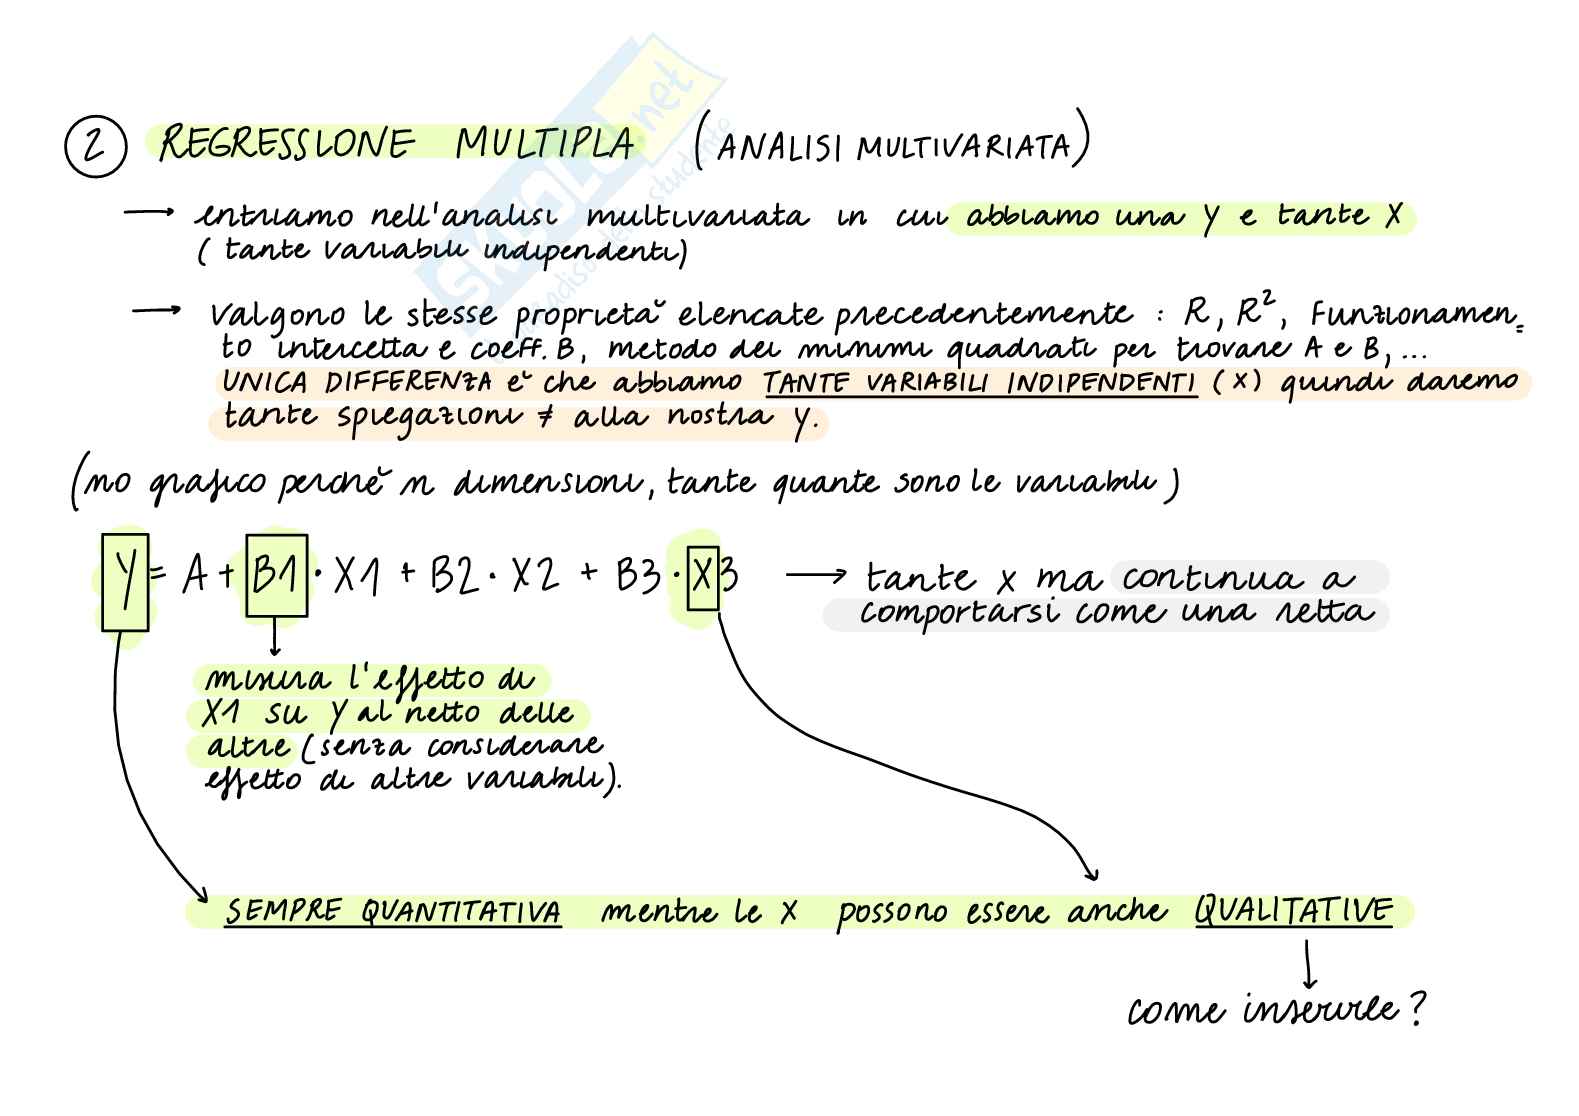 2 REGRESSIONE MULTIPLA (ANALISI MULTIVARIATA)
SKUOLA.net
paradiso dello studente
→ entriamo nell'analisi multivariata in cui abbiamo una Y e tante X
(tante variabili indipendenti)
→ valgono le stesse proprietà elencate precedentemente : R, R², Funzionamen=
to intercetta e coeff. B, metodo dei minimi quadrati per trovare A e B, ...
UNICA DIFFERENZA è che abbiamo TANTE VARIABILI INDIPENDENTI (X) quindi daremo
tante spiegazioni ≠ alla nostra y.
(no grafico perchè n dimensioni, tante quante sono le variabili)
Y = A + B1 · X1 + B2 · X2 + B3 · X3 → tante x ma continua a
comportarsi come una retta
misura l'effetto di
X1 su Y al netto delle
altre (senza considerare
effetto di altre variabili).
SEMPRE QUANTITATIVA mentre le X possono essere anche QUALITATIVE
come inserirle?